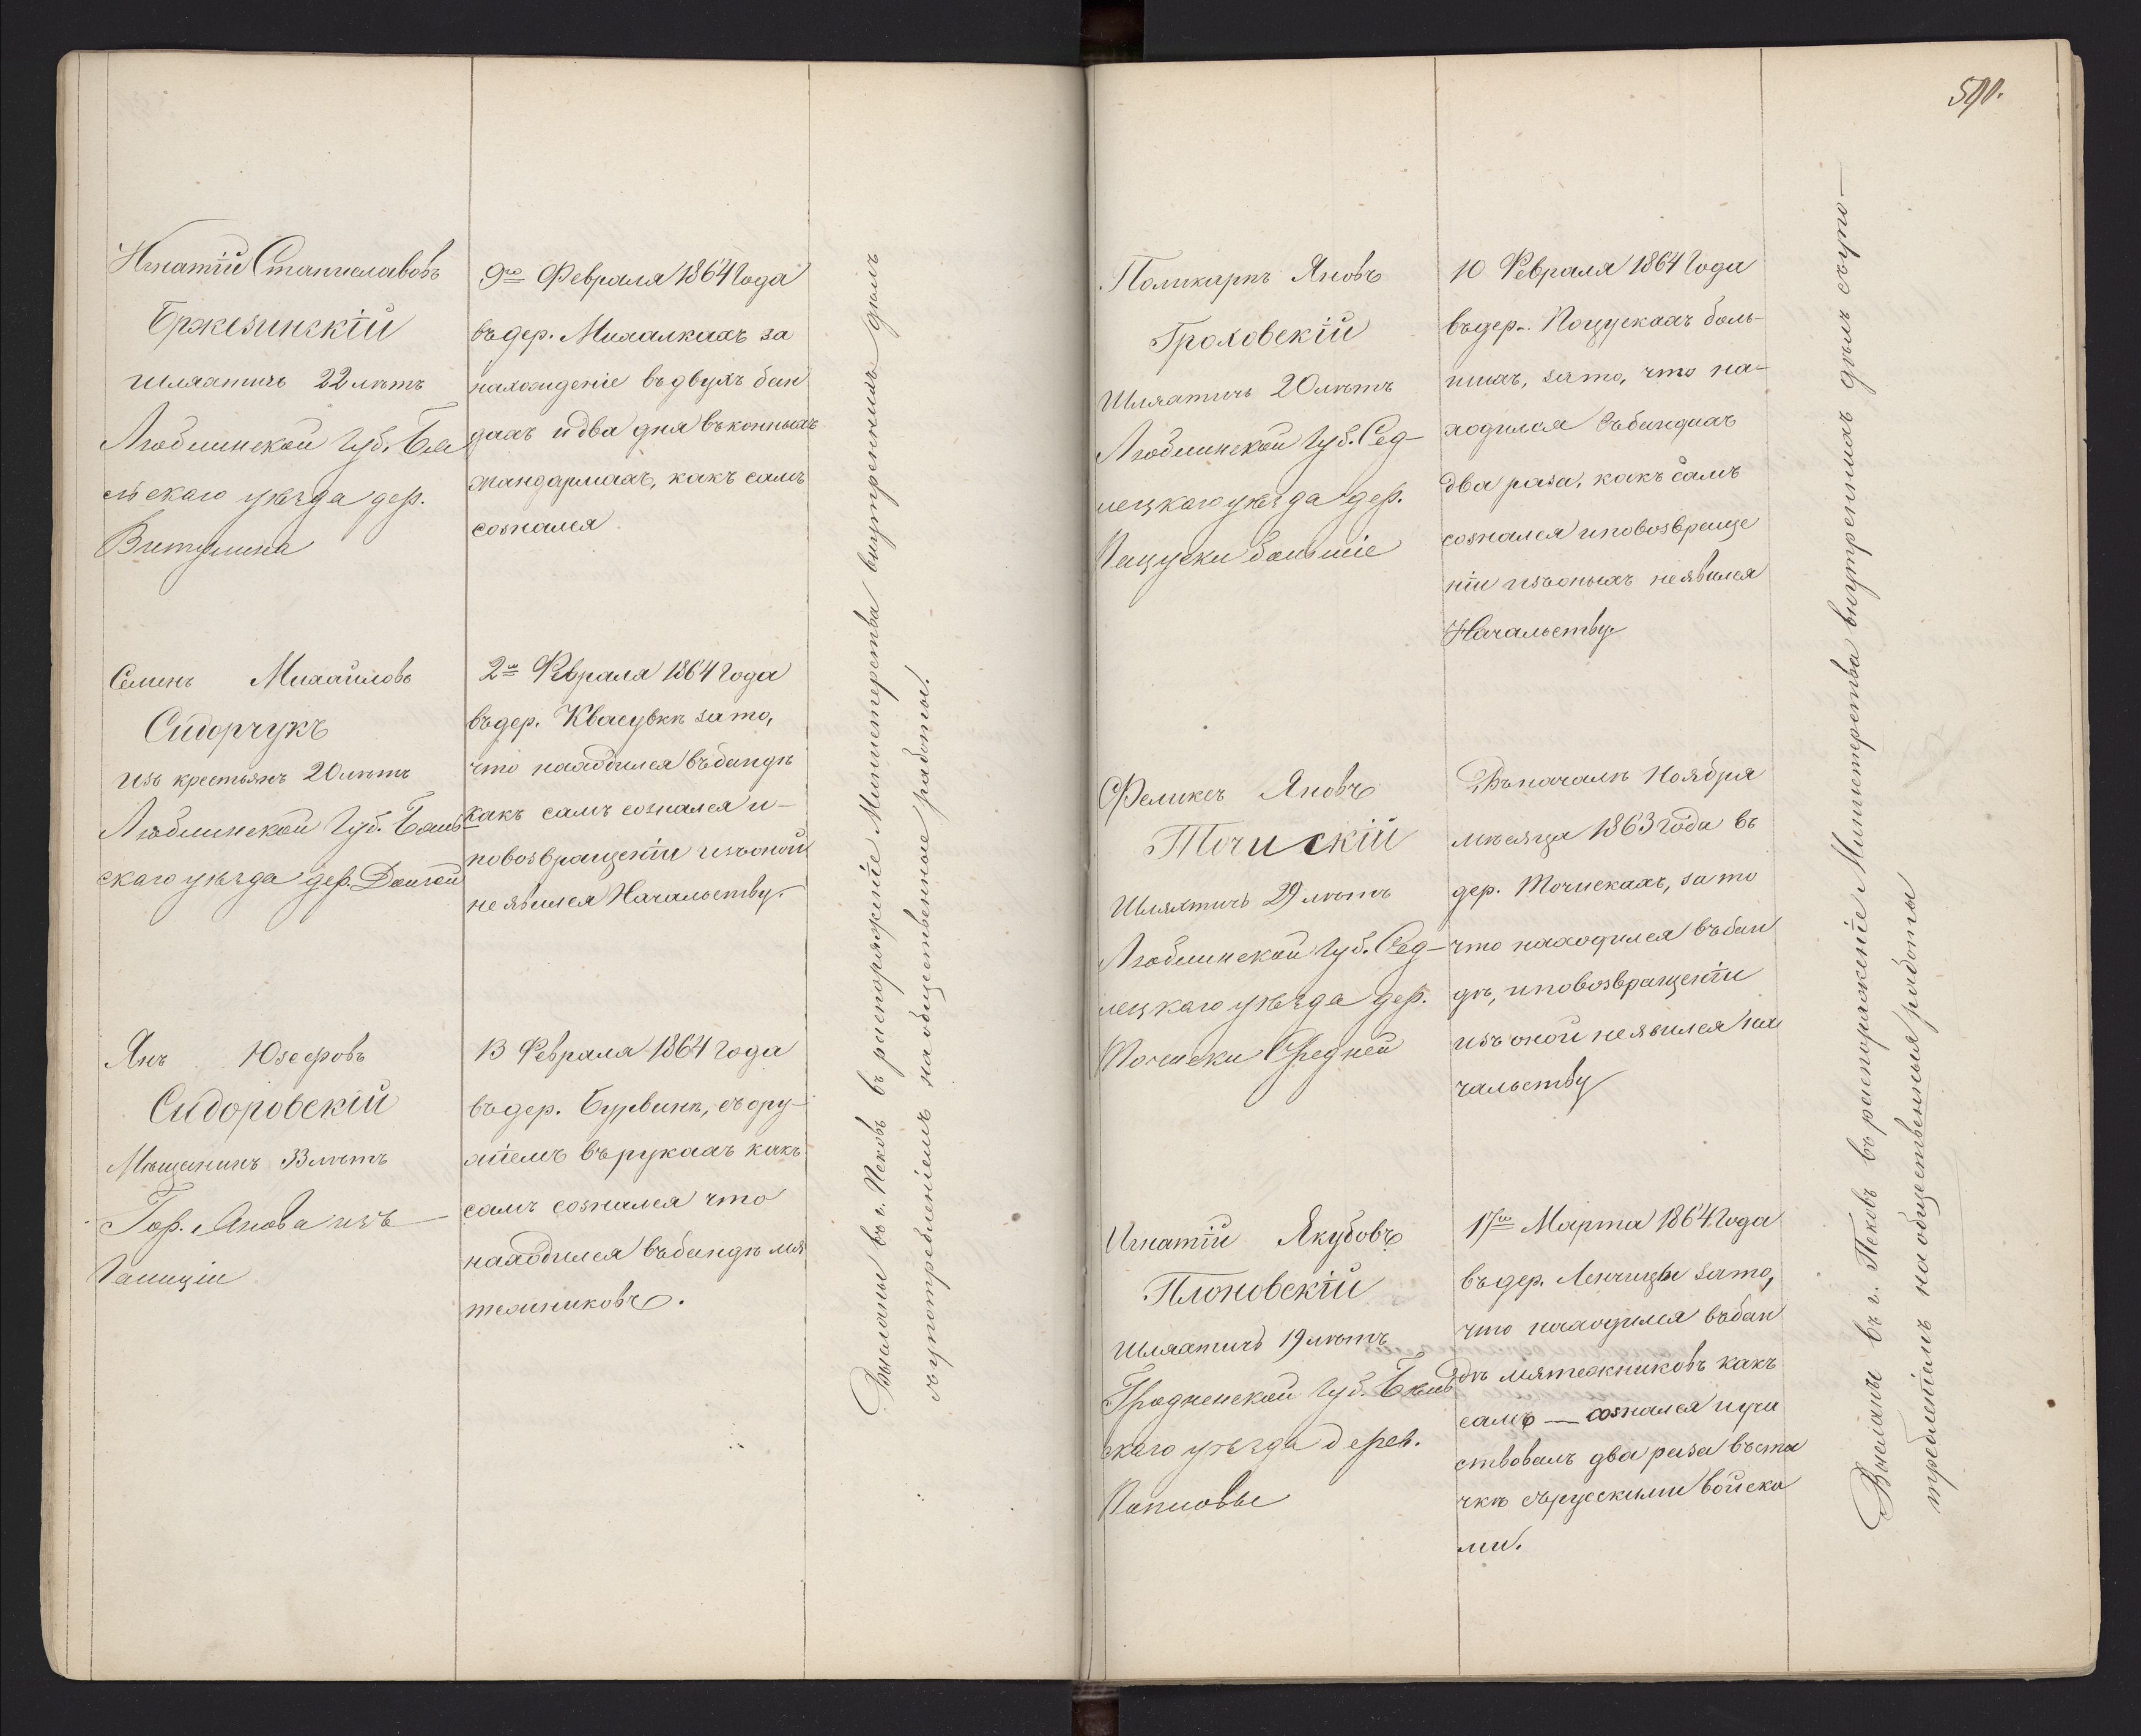 Игнатій Станиславовъ
Бржезинскій
шляхтичъ 22 лѣтъ
Люблинской Губ. Бя
льскаго уѣзда дер.
Витулина
9го Февраля 1864 года
въ дер. Михалкахъ за
нахожденіе въ двухъ бан
дахъ и два дня въ конныхъ
жандармахъ, какъ самъ
сознался
Семенъ Михайловъ
Сидорчукъ
изъ крестьянъ 20 лѣтъ
Люблинской Губ. Бяль
скаго уѣзда дер. Долгой
2го Февраля 1864 года
въ дер. Квасувкѣ за то,
что находился въ бандѣ
какъ самъ сознался и
по возвращеніи изъ оной
не явился Начальству.
Янъ Юзефовъ
Сидоровскій
Мѣщанинъ 33 лѣтъ
Гор. Янова изъ
Галиціи
13 Февраля 1864 года
въ дер. Бурвинѣ, съ ору-
жіемъ въ рукахъ какъ
самъ сознался что
находился въ бандѣ мя
тежниковъ.
Высланы въ г. Псковъ въ распоряженіе Министерства внутреннихъ дѣлъ
съ употребленіемъ на общественные работы.
590.
Поликарпъ Яновъ
Гроховскій
Шляхтичъ 20 лѣтъ
Люблинской Губ. Сед-
лецкаго уѣзда дер.
Пацуски больше
10 Февраля 1864 года
въ дер. Пацускахъ боль-
шихъ, за то, что на-
ходился въ бандахъ
два раза, какъ самъ
сознался и по возвраще
ніи изъ оныхъ не явился
Начальству
Феликсъ Яновъ
Точискій
Шляхтичъ 29 лѣтъ
Люблинской Губ. Сед-
лецкаго уѣзда дер.
Точиски Средней
Въ началѣ Ноября
мѣсяца 1863 года въ
дер. Точискахъ, за то
что находился въ бан
дѣ, и по возвращеніи
изъ оной не явился на
чальству
Игнатій Якубовъ
Плоновскій
шляхтичъ 19 лѣтъ
Гродненской Губ. Бѣль
скаго уѣзда дерев.
17го Марта 1864 года
въ дер. за то,
что находился въ бан
дѣ мятежниковъ какъ
самъ — сознался и уча
ствовалъ два раза въ сты
чкѣ съ русскими войска
ми.
Высланы въ г. Псковъ въ распоряженіе Министерства внутреннихъ дѣлъ съ упо-
требленіемъ на общественныя работы